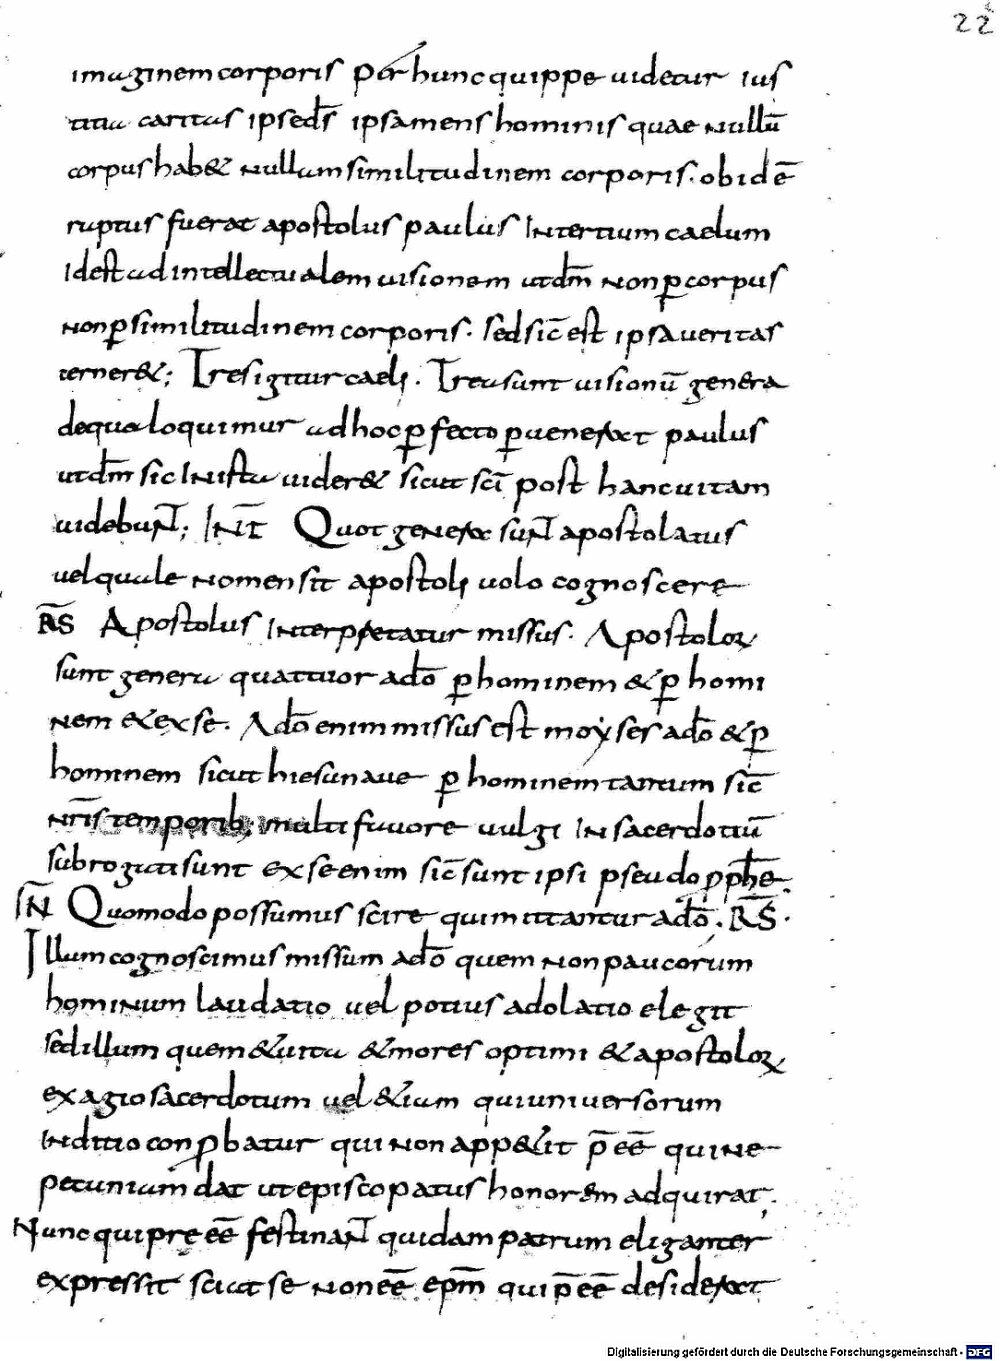 22
imaginem corporis per hunc quippe uidetur ius
titia caritas ipse d̄s ipsa mens hominis quae nullū
corpus hab& nullam similitudinem corporis. ob id ē
raptus fuerat apostolus paulus in tertium caelum
id est ad intellectualem uisionem ut dm̄ non p̱ corpus
non p̱ similitudinem corporis. sed sic̄ est ipsa ueritas
cerner&; Tres igitur caeli. Tria sunt uisionū genera
de qua loquimur ad hoc p̱fecto p̱uenerat paulus
ut dm̄ sic in ista uider& sicut sc̄i post hanc uitam
uidebuɴ̄t; INT̄ Quot genera suɴ̄t apostolatus
uel quale nomen sit apostoli uolo cognoscere
R̄S Apostolus interpretatur missus. Apostoloꝝ
sunt genera quattuor a dō p̱ hominem & p̱ homi
nem & ex se. A dō enim missus est moẏses a dō & p̱
hominem sicut hiesu naue p̱ hominem tantum sic̄
nr̄is temporib; multi fauore uulgi in sacerdotiū
subrogati sunt ex se enim sic̄ sunt ipsi pseudo pph̄e.
IN̄ Quomodo possumus scire qui mittantur a dō. R̄S.
Illum cognoscimus missum a dō quem non paucorum
hominum laudatio uel potius adolatio elegit
sed illum quem & uita & mores optimi & apostoloꝝ
ex agio sacerdotum uel &iam qui uniuersorum
inditio conp̱batur qui non app&it p̄ eē qui ne
pecuniam dat ut episcopatus honorem adquirat.
Nunc qui pre eē festinaɴ̄t quidam patrum eliganter
expressit sciat se non eē ep̄m qui p̄ eē desiderat
Digitalisierung gefördert durch die Deutsche Forschungsgemeinschaft - DFG